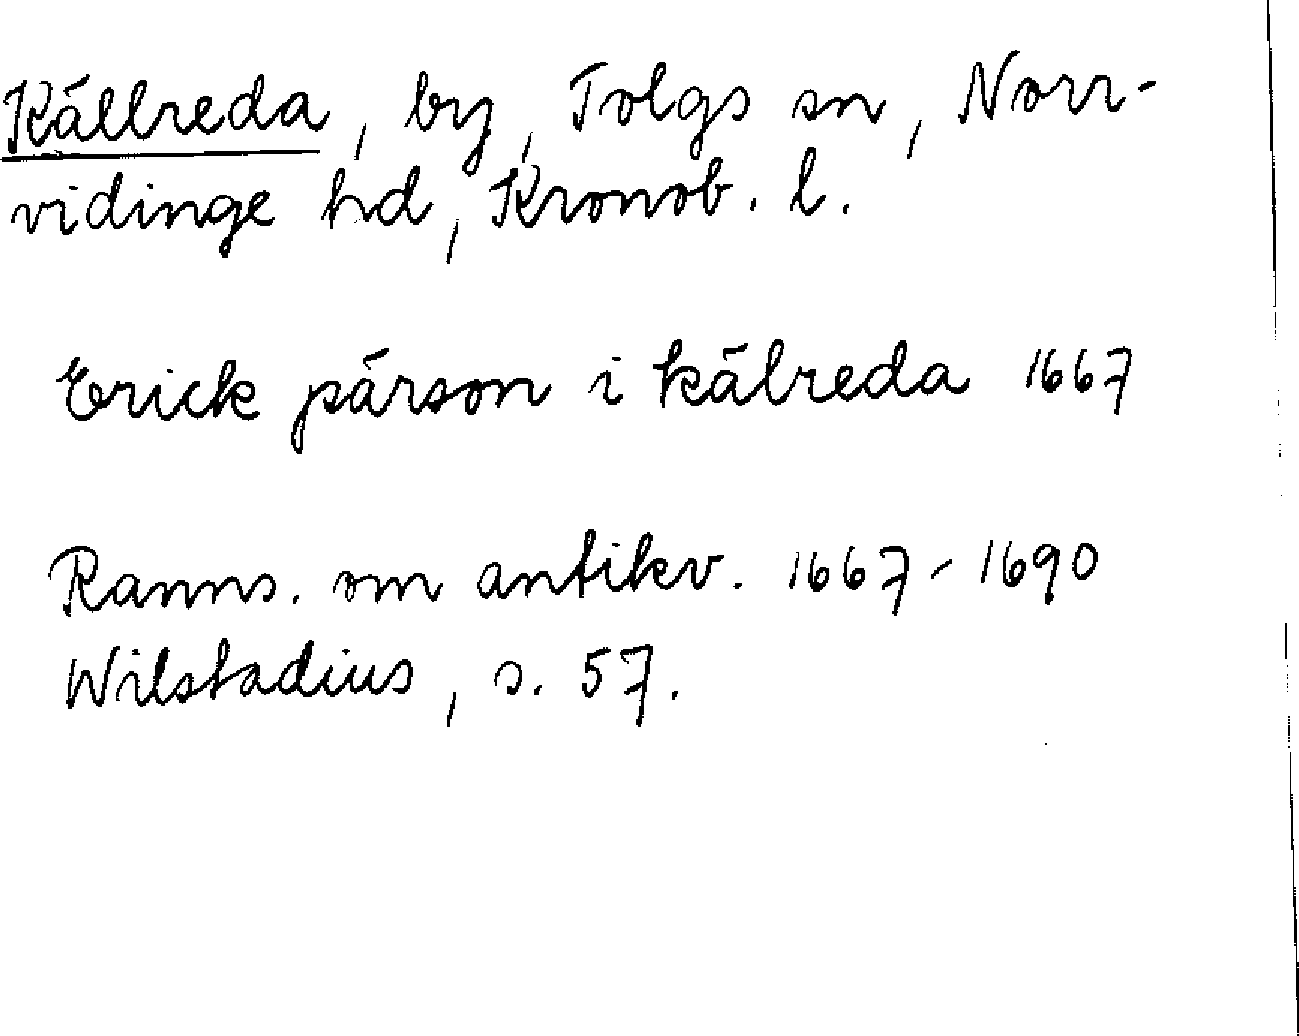 Källreda, by, Tolgs sn, Norr-
vidinge hd, Kronob. l.
Erick pärson i kälreda 1667
Ranns. om antikv. 1667-1690
Wilstadius, s. 57.